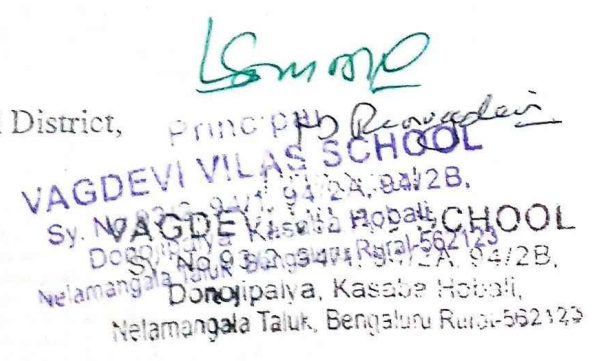 District,
Principal
VAGDEVI VILAS SCHOOL
Sy. No 93/2, 94/1, 94/2A, 94/2B,
Donojipalya Kasaba Hobali,
Nelamangala Taluk Bengaluru Rural-562123
VAGDEVI SCHOOL
Sy. No 93/2, 94/1, 94/2A, 94/2B,
Donojipalya, Kasaba Hobali,
Nelamangala Taluk, Bengaluru Rural-562123